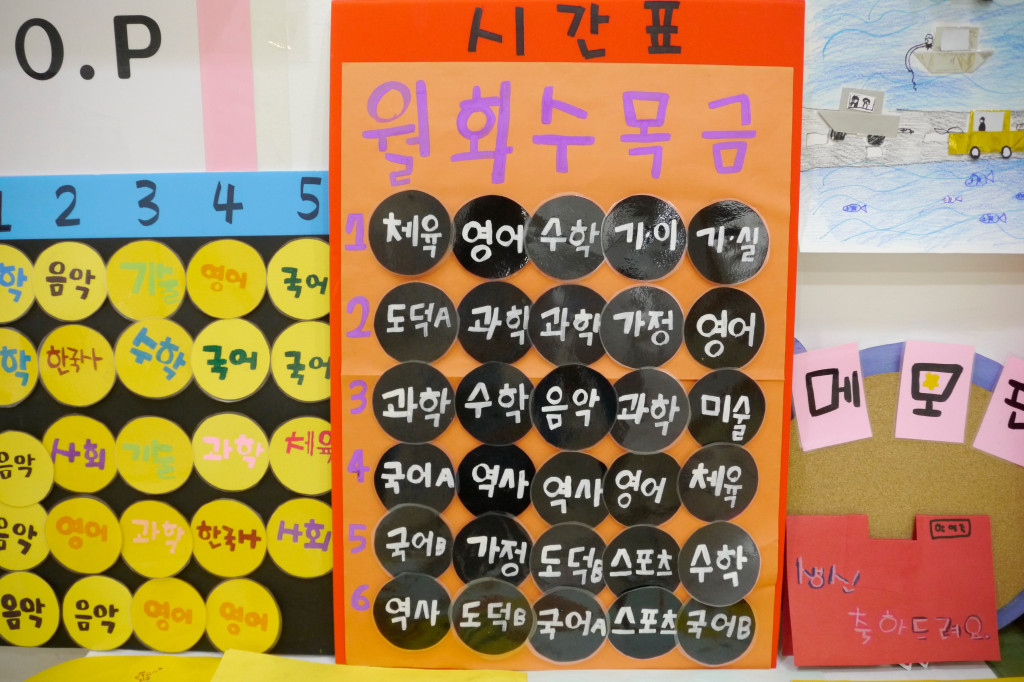 O.P
2 3 4 5
학 음악 기술 영어 국어
학 한국사 수학 국어 국어
음악 사회 기술 과학 체육
음악 영어 과학 한국사 사회
음악 음악 영어 영어
시간표
월 화 수 목 금
1 체육 영어 수학 기·이 기·실
2 도덕A 과학 과학 가정 영어
3 과학 수학 음악 과학 미술
4 국어A 역사 역사 영어 체육
5 국어B 가정 도덕B 스포츠 수학
6 역사 도덕B 국어A 스포츠 국어B
메모판
생신
축하드려요.